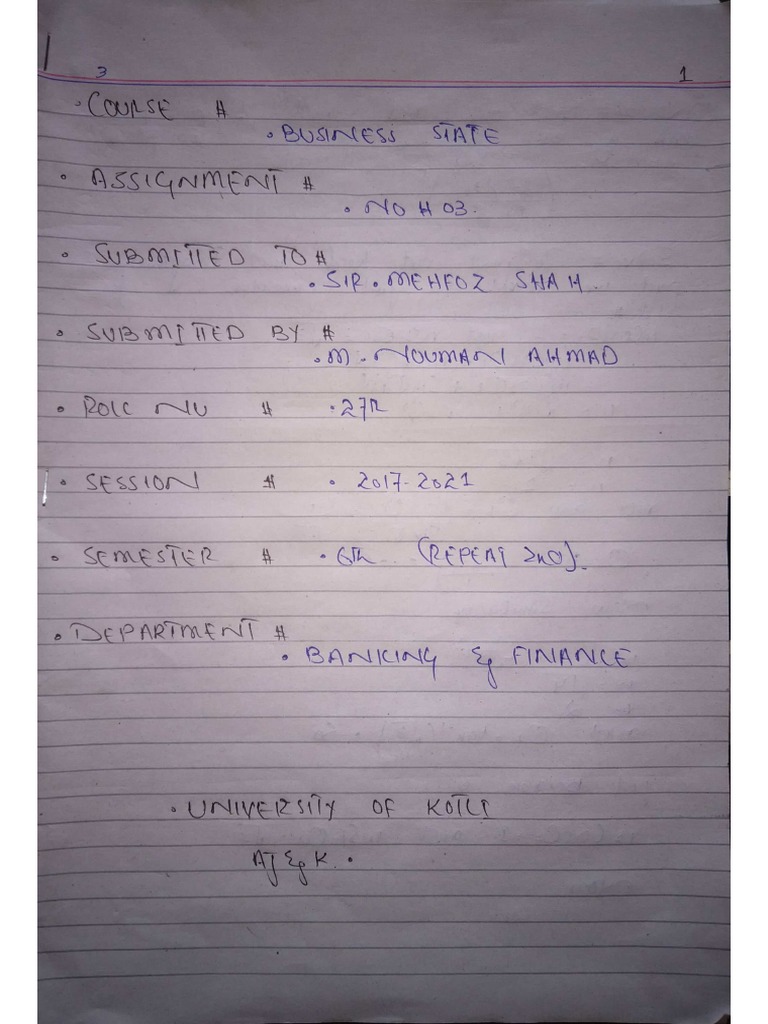 3 1
• COURSE #
• BUSINESS STATE
• ASSIGNMENT #
• NO # 03.
• SUBMITTED TO #
• SIR • MEHFOZ SHAH.
• SUBMITTED BY #
• M • NOUMAN AHMAD
• ROLL NO #
• SESSION # • 2017-2021
• SEMESTER # • 6th (REPEAT 2nD).
• DEPARTMENT #
• BANKING & FINANCE
• UNIVERSITY OF KOTLI
AJ & K. •